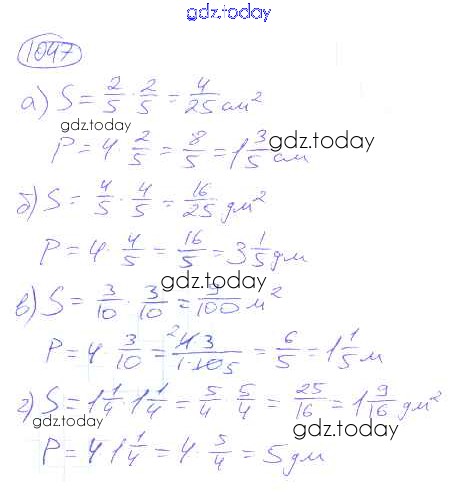 gdz.today
1047
а) S = 2/5 · 2/5 = 4/25 см²
gdz.today
P = 4 · 2/5 = 8/5 = 1 3/5 см
gdz.today
б) S = 4/5 · 4/5 = 16/25 дм²
P = 4 · 4/5 = 16/5 = 3 1/5 дм
gdz.today
в) S = 3/10 · 3/10 = 9/100 м²
P = 4 · 3/10 = ²4·3/1·10 5 = 6/5 = 1 1/5 м
г) S = 1 1/4 · 1 1/4 = 5/4 · 5/4 = 25/16 = 1 9/16 дм²
gdz.today
gdz.today
P = 4 · 1 1/4 = 4 · 5/4 = 5 дм